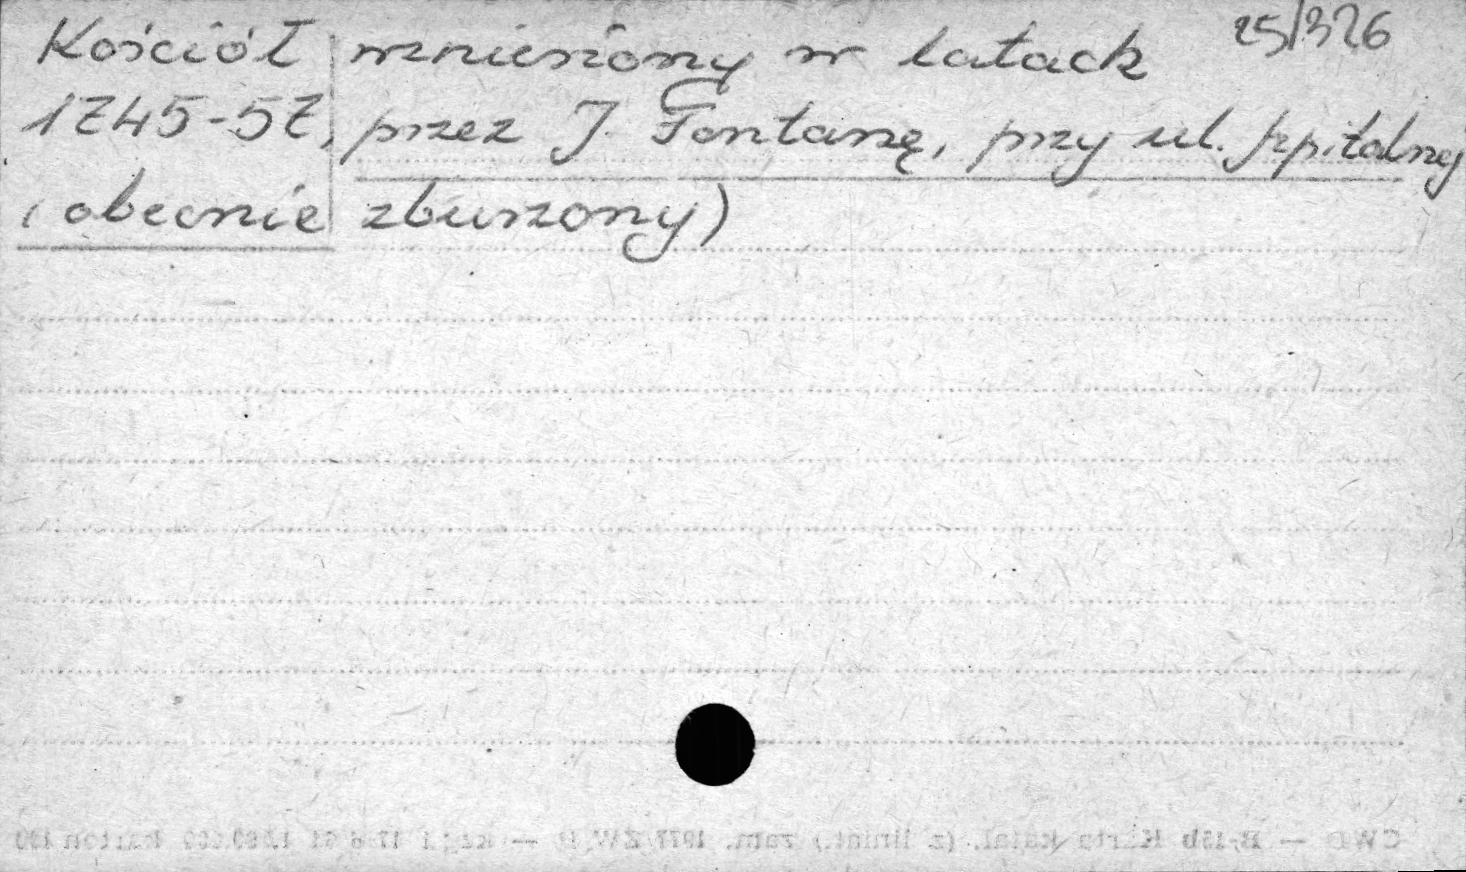 25/326
Kościół wzniesiony w latach
1745-57, przez J. Fontanę, przy ul. szpitalnej
(obecnie zburzony)